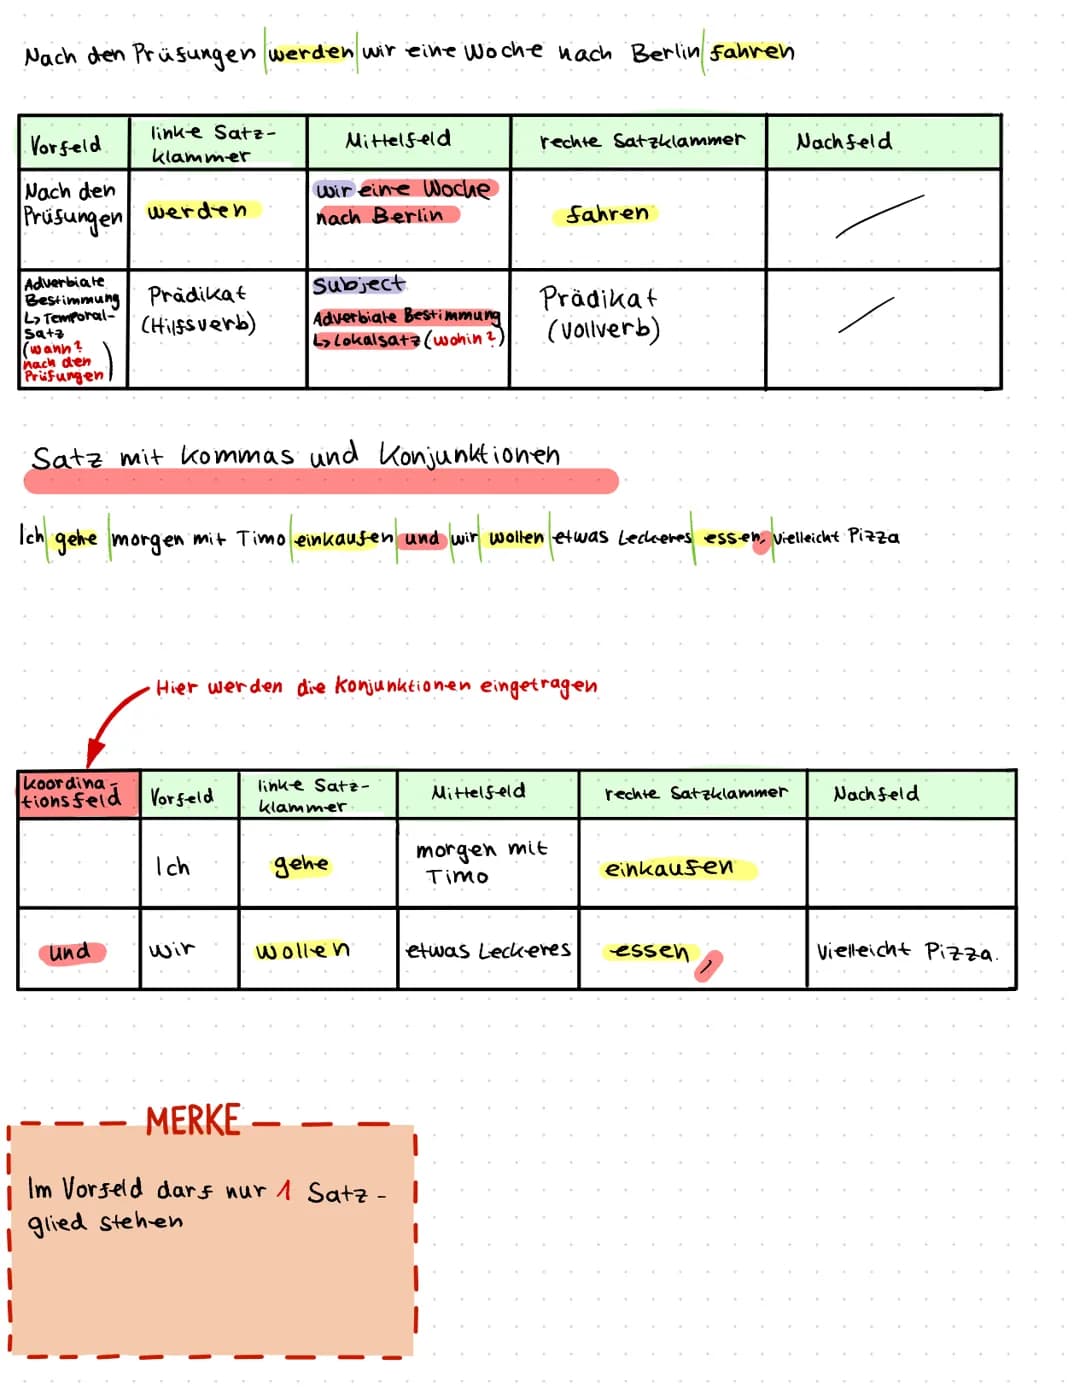 Nach den Prüfungen werden wir eine Woche nach Berlin fahren
Vorfeld
linke Satz-
klammer
Mittelfeld
rechte Satzklammer
Nachfeld
Nach den
Prüfungen
werden
wir eine Woche
nach Berlin
fahren
Adverbiale
Bestimmung
↳ Temporal-
satz
(wann?
nach den
Prüfungen)
Prädikat
(Hilfsverb)
Subject
Adverbiale Bestimmung
↳ Lokalsatz (wohin?)
Prädikat
(Vollverb)
Satz mit kommas und Konjunktionen
Ich gehe morgen mit Timo einkaufen und wir wollen etwas Leckeres essen, vielleicht Pizza
Hier werden die Konjunktionen eingetragen
Koordina-
tionsfeld
Vorfeld
linke Satz-
klammer
Mittelfeld
rechte Satzklammer
Nachfeld
Ich
gehe
morgen mit
Timo
einkaufen
und
wir
wollen
etwas Leckeres
essen,
vielleicht Pizza.
MERKE
Im Vorfeld darf nur 1 Satz-
glied stehen